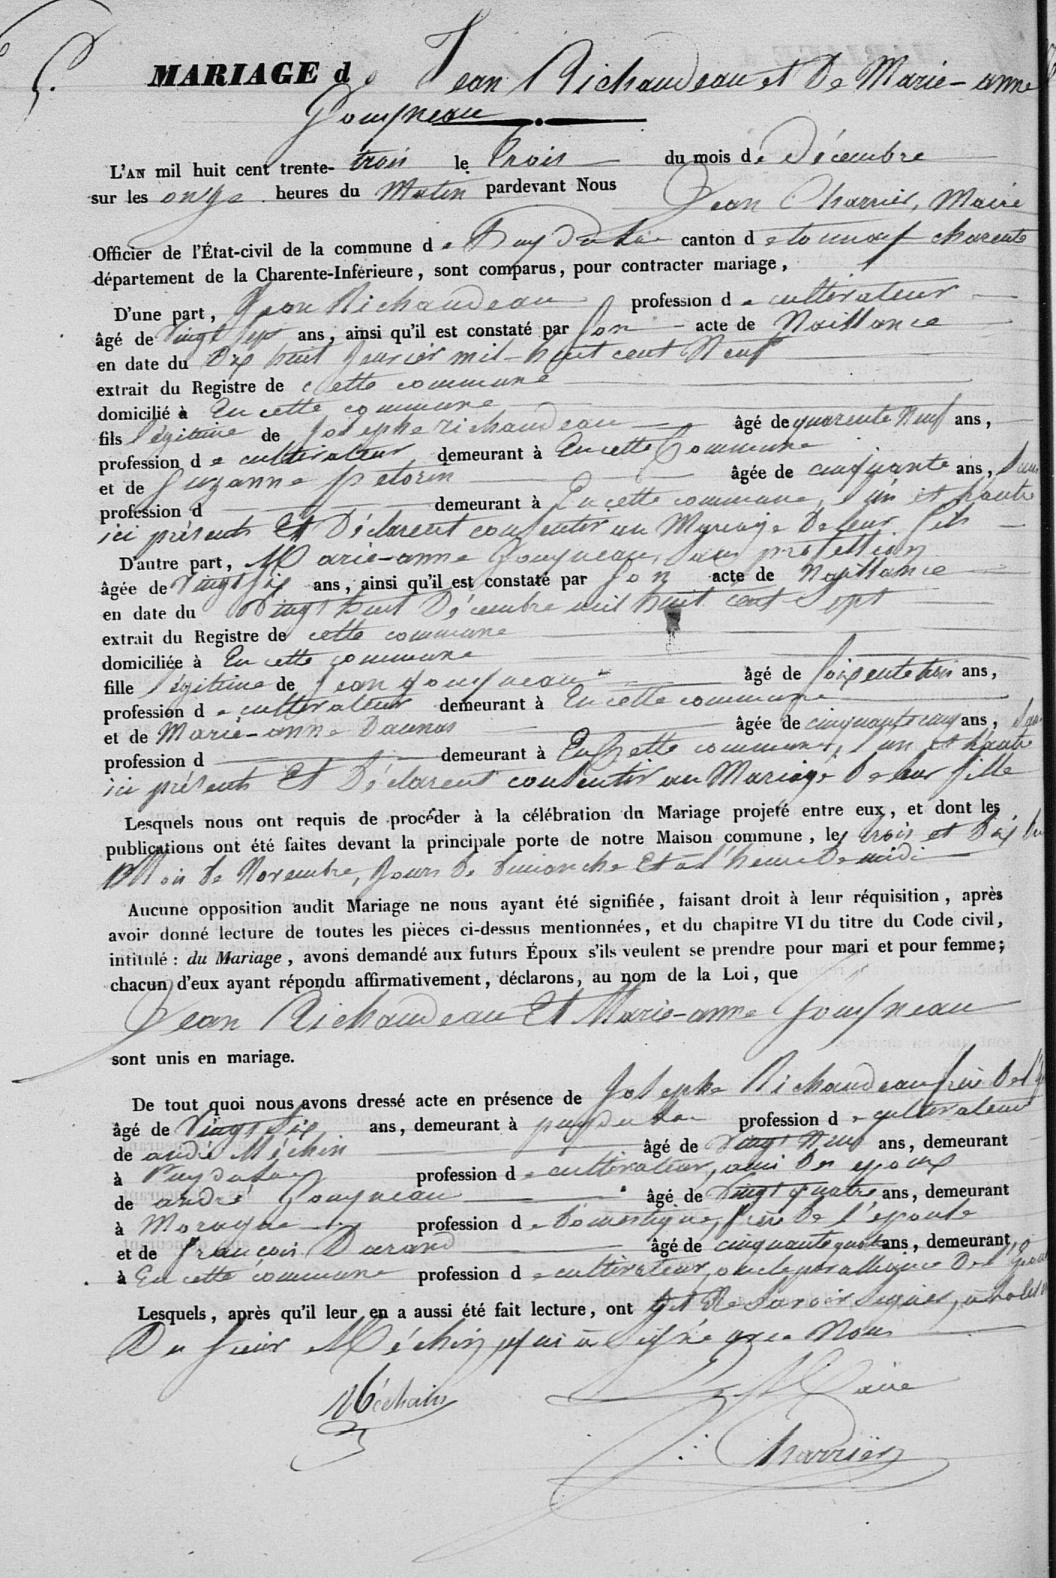 5.
MARIAGE de Jean Richaudeau et de Marie-anne
Gouyneau
L'AN mil huit cent trente-trois le Trois du mois de Décembre
sur les onze heures du Matin pardevant Nous Jean Charrier, Maire
Officier de l'État-civil de la commune de Puydulac canton de tonnay charente
département de la Charente-Inférieure, sont comparus, pour contracter mariage,
D'une part, Jean Richaudeau profession de cultivateur
âgé de Vingt sept ans, ainsi qu'il est constaté par son acte de Naissance
en date du Dix huit Janvier mil-huit cent Neuf
extrait du Registre de cette commune
domicilié à En cette commune
fils légitime de Josephe richaudeau âgé de quarente Neuf ans,
profession de cultivateur demeurant à En cette Commune
et de Suzanne petorin âgée de cinquante ans, sans
profession d demeurant à En cette commune, l'un et l'autre
ici présents Et Déclarent consentir au Mariage De leur fils
D'autre part, Marie-anne Gouyneau, sans profession
âgée de Vingt six ans, ainsi qu'il est constaté par son acte de Naissance
en date du Vingt huit Décembre mil huit cent sept
extrait du Registre de cette commune
domiciliée à En cette commune
fille légitime de Jean gouyneau âgé de soixente trois ans,
profession de cultivateur demeurant à En cette commune
et de Marie-anne Daunas âgée de cinquante cinq ans, sans
profession d demeurant à En Cette commune, l'un et l'autre
ici présents Et Déclarent consentir au Mariage De leur fille
Lesquels nous ont requis de procéder à la célébration du Mariage projeté entre eux, et dont les
publications ont été faites devant la principale porte de notre Maison commune, les trois et Dix du
Mois de Novembre, Jours de dimanche Et à l'heure De midi
Aucune opposition audit Mariage ne nous ayant été signifiée, faisant droit à leur réquisition, après
avoir donné lecture de toutes les pièces ci-dessus mentionnées, et du chapitre VI du titre du Code civil,
intitulé : du Mariage, avons demandé aux futurs Époux s'ils veulent se prendre pour mari et pour femme;
chacun d'eux ayant répondu affirmativement, déclarons, au nom de la Loi, que
Jean Richaudeau Et Marie-anne Gouyneau
sont unis en mariage.
De tout quoi nous avons dressé acte en présence de Josephe Richaudeau frère De
âgé de Vingt six ans, demeurant à puydulac profession de cultivateur
de andré Méchin âgé de Vingt Neuf ans, demeurant
à Puydulac profession de cultivateur, ami des epoux
de andré Gouyneau âgé de Vingt quatre ans, demeurant
à Moragne profession de Domestique, frère De l'epouse
et de françois Durand âgé de cinquante quatre ans, demeurant
à En cette commune profession de cultivateur, oncle par alliance De l'Epouse
Lesquels, après qu'il leur en a aussi été fait lecture, ont dit Ne Savoir signer,
Du sieur Méchin qui à signé avec Nous
Méchain
Le Maire
Charrier